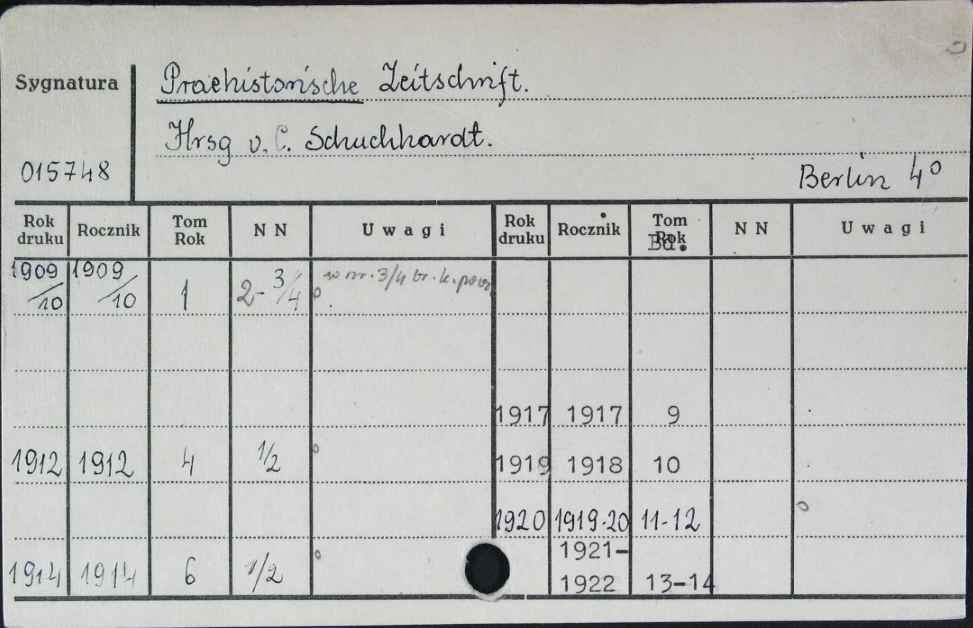 Sygnatura
Praehistorische Zeitschrift.
Hrsg v. C. Schuchhardt.
015748
Berlin 4º
Rok druku Rocznik Tom Rok N N Uwagi Rok druku Rocznik Tom Rok Bd. N N Uwagi
1909/10 1909/10 1 2-3/4 w nr. 3/4 br. k.
1917 1917 9
1912 1912 4 1/2 1919 1918 10
1920 1919-20 11-12
1914 1914 6 1/2 1921-1922 13-14